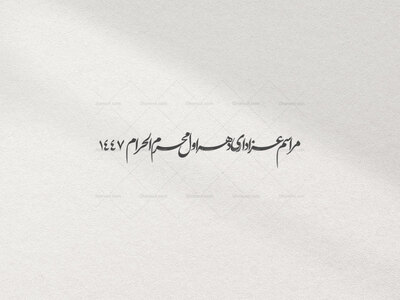 مراسم عزاداری دهه اول محرم الحرام ۱۴۴۷